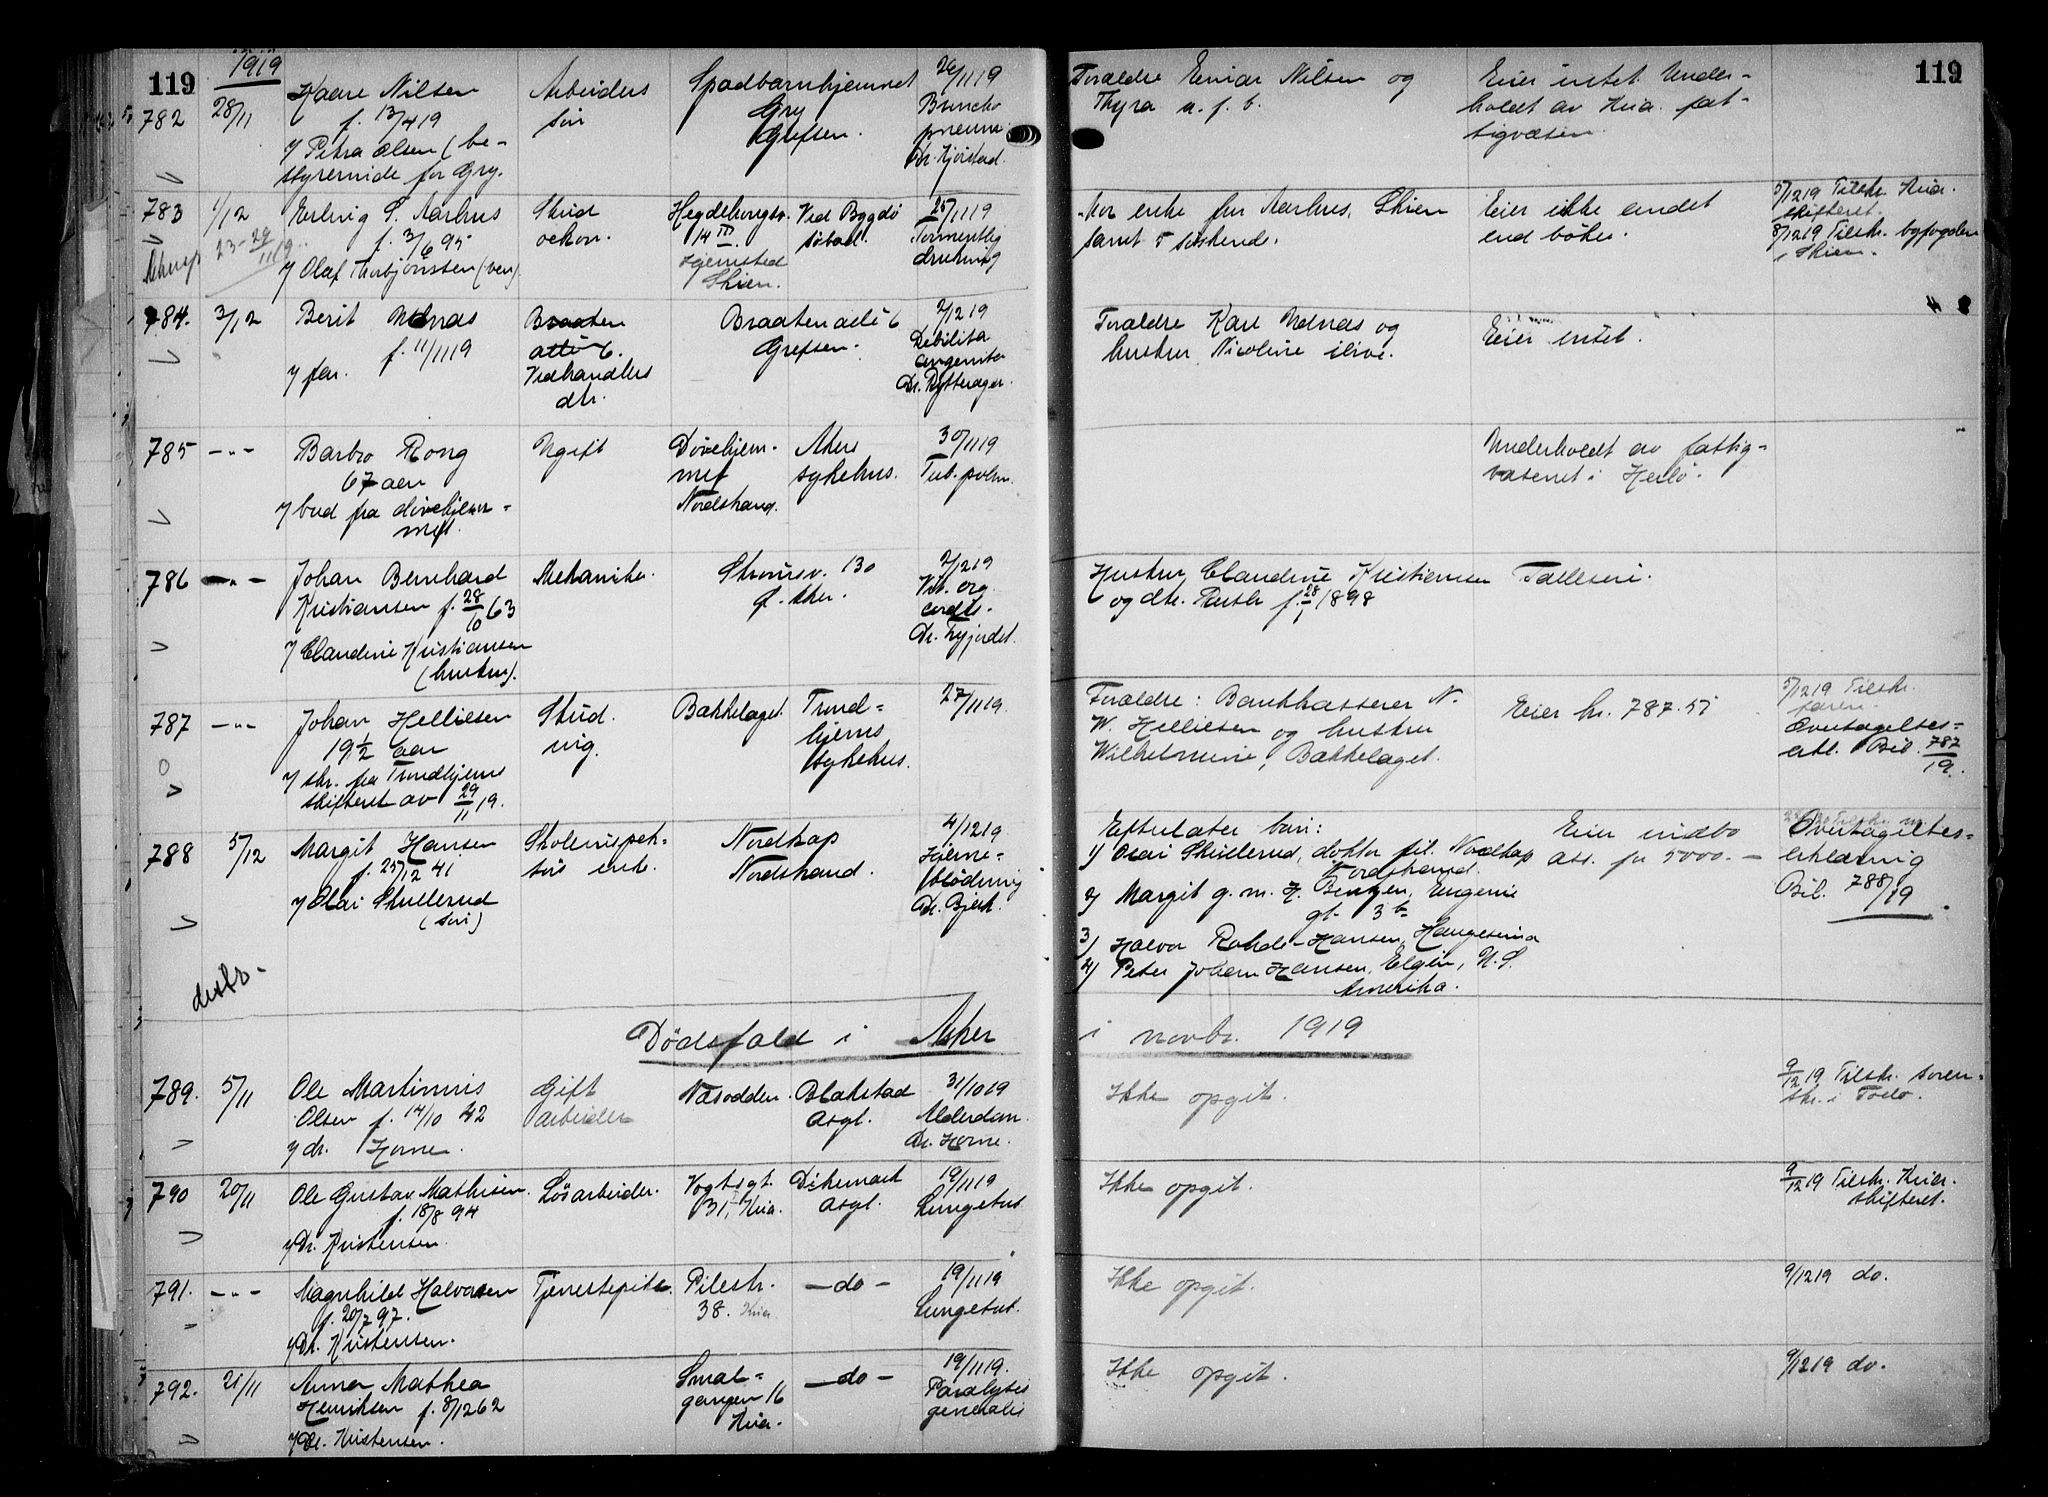 119
1919
119
782
28/11
Kaare Nilsen
f. 13/4 19
v/ Petra Olsen (be-
styrerinde for Gry.
Arbeiders
søn
Spædbarnhjemmet
Gry
Grefsen.
26/11 19
Broncho
pneum.
Forældre Einar Nilsen og
Thyra u. f. b.
Eier intet. Under-
holdt av Kria. fat-
tigvæsen.
783
1/12
23-29/11 19.
S. Aarhus
f. 3/6 95
v/ Olaf Thorbjørnssen (ven)
Stud
oekon.
Hegdehaugsv.
14 III
Hjemsted
Skien.
Ved Bygdø
søbad.
25/11 19
drukning
Mor enke fru Aarhus, Skien
samt 5 søskende.
Eier ikke andet
end bøker.
5/12 19 Tilskr. Kria.
skifteret.
8/12 19 Tilskr. byfogden
i Skien.
784.
3/12
Berit
f. 11/11 19
v/ far.
Braaten
allé 6.
Vedhandlers
dtr.
Braaten allé 6
Grefsen.
2/12 19
Debilitas
congenita
Dr. Rytterager.
Forældre Karl og
hustru Nicoline ilive.
Eier intet.
785
— " —
Barbro Rong
67 aar
v/ bud fra døvehjem-
met.
Ugift
Døvehjem-
met
Nordstrand.
Akers
sykehus.
30/11 19
Tub. pulm.
Underholdt av fattig-
væsenet i Herlø.
786
— " —
Johan Bernhard
Kristiansen f. 28/10 63
v/ Claudine Kristiansen
(hustru).
Mekaniker.
Strømsv. 130
Ø. Aker.
2/12 19
Vit. org.
cordis.
Hustru Claudine Kristiansen
og dtr. Ruth f. 28/1 1898
Fælleseie.
787
— " —
Johan Helliesen
19 1/2 aar
v/ skr. fra Trondhjems
skifteret av 29/11 19.
Stud.
ing.
Bækkelaget.
Trond-
hjems
sykehus.
27/11 19.
Forældre: Bankkasserer N.
W. Helliesen og hustru
Wilhelmine, Bækkelaget.
Eier kr. 787.57
5/12 19 Tilskr.
faren.
Overtagelses-
erkl. Bil. 787/19.
788
5/12
Margit Hansen
f. 25/12 41
v/ Olai Skullerud
(søn)
Skoleinspek-
tørs enke.
Nordkap
Nordstrand.
4/12 19
Hjerne-
blødning
Dr. Bjerk.
Efterlater barn:
1) Olai Skullerud, doktor fil. Nordkap
Nordstrand.
2) Margit g. m. H. Bentzen, Eugenie
gt. 3 b
3) Halvor Rohde-Hansen, Haugesund
4) Peter Johan Hansen, Elgin, U. S.
Amerika.
Eier indbo
ass. for 5000.—
Overtagelses-
erklæring
Bil. 788/19.
Dødsfald i Asker
i novbr. 1919
789.
5/11
Ole Martinius
Olsen f. 14/10 42
v/ dr. Horne.
Gift
arbeider
Næsodden.
Blakstad
asyl.
31/10 19
Alderdom.
Dr. Horne.
Ikke opgit.
9/12 19 Tilskr. soren-
skr. i Follo.
790
20/11
Ole Gustav Mathisen.
f. 18/8 94
v/ Dr. Kristensen.
Løsarbeider.
Vogtsgt.
31, Kria.
Dikemark
asyl.
19/11 19
Lungetub.
Ikke opgit.
9/12 19 Tilskr. Kria.
skifteret.
791.
— " —
Magnhild Halvorsen
f. 20/7 97.
v/ Dr. Kristensen.
Tjenestepike.
Pilestr.
38. Kria
— do —
19/11 19
Lungetub.
Ikke opgit.
9/12 19 do.
792.
21/11
Anna Mathea
Henriksen f. 8/12 62
v/ Dr. Kristensen.
Smal-
gangen 16
Kria.
— do —
19/11 19.
Paralysis
generalis
Ikke opgit.
9/12 19 do.